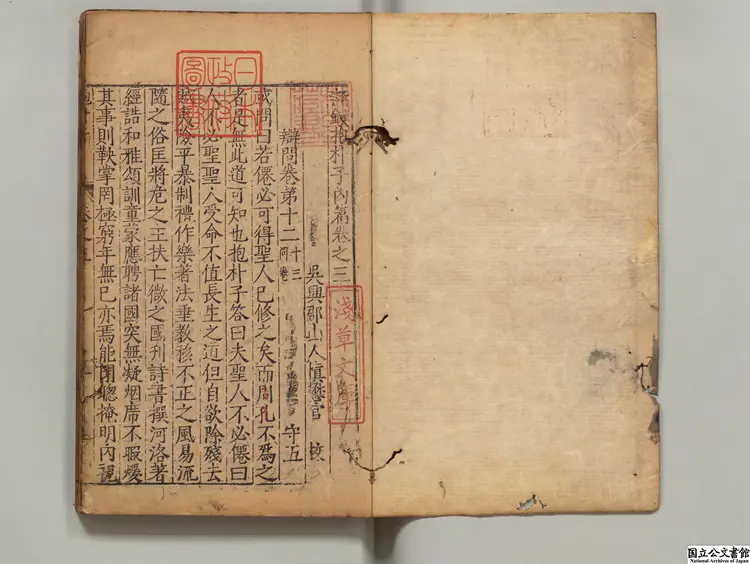 新鋟抱朴子內篇卷之三
吳興郡山人愼懋官 校
辯問卷第十二 十三同卷 守五
或問曰若僊必可得聖人已修之矣而周孔不爲之
者是無此道可知也抱朴子答曰夫聖人不必僊
人不必聖聖人受命不值長生之道但自欲除殘去
賊夷險平暴制禮作樂著法垂教移不正之風易流
隨之俗匡將危之主扶亡徵之國刊詩書撰河洛著
經誥和雅頌訓童蒙應聘諸國突無凝烟席不暇煖
其事則鞅掌罔極窮年無已亦焉能閉聰掩明內視
日本政府圖書
淺草文庫
国立公文書館
National Archives of Japan